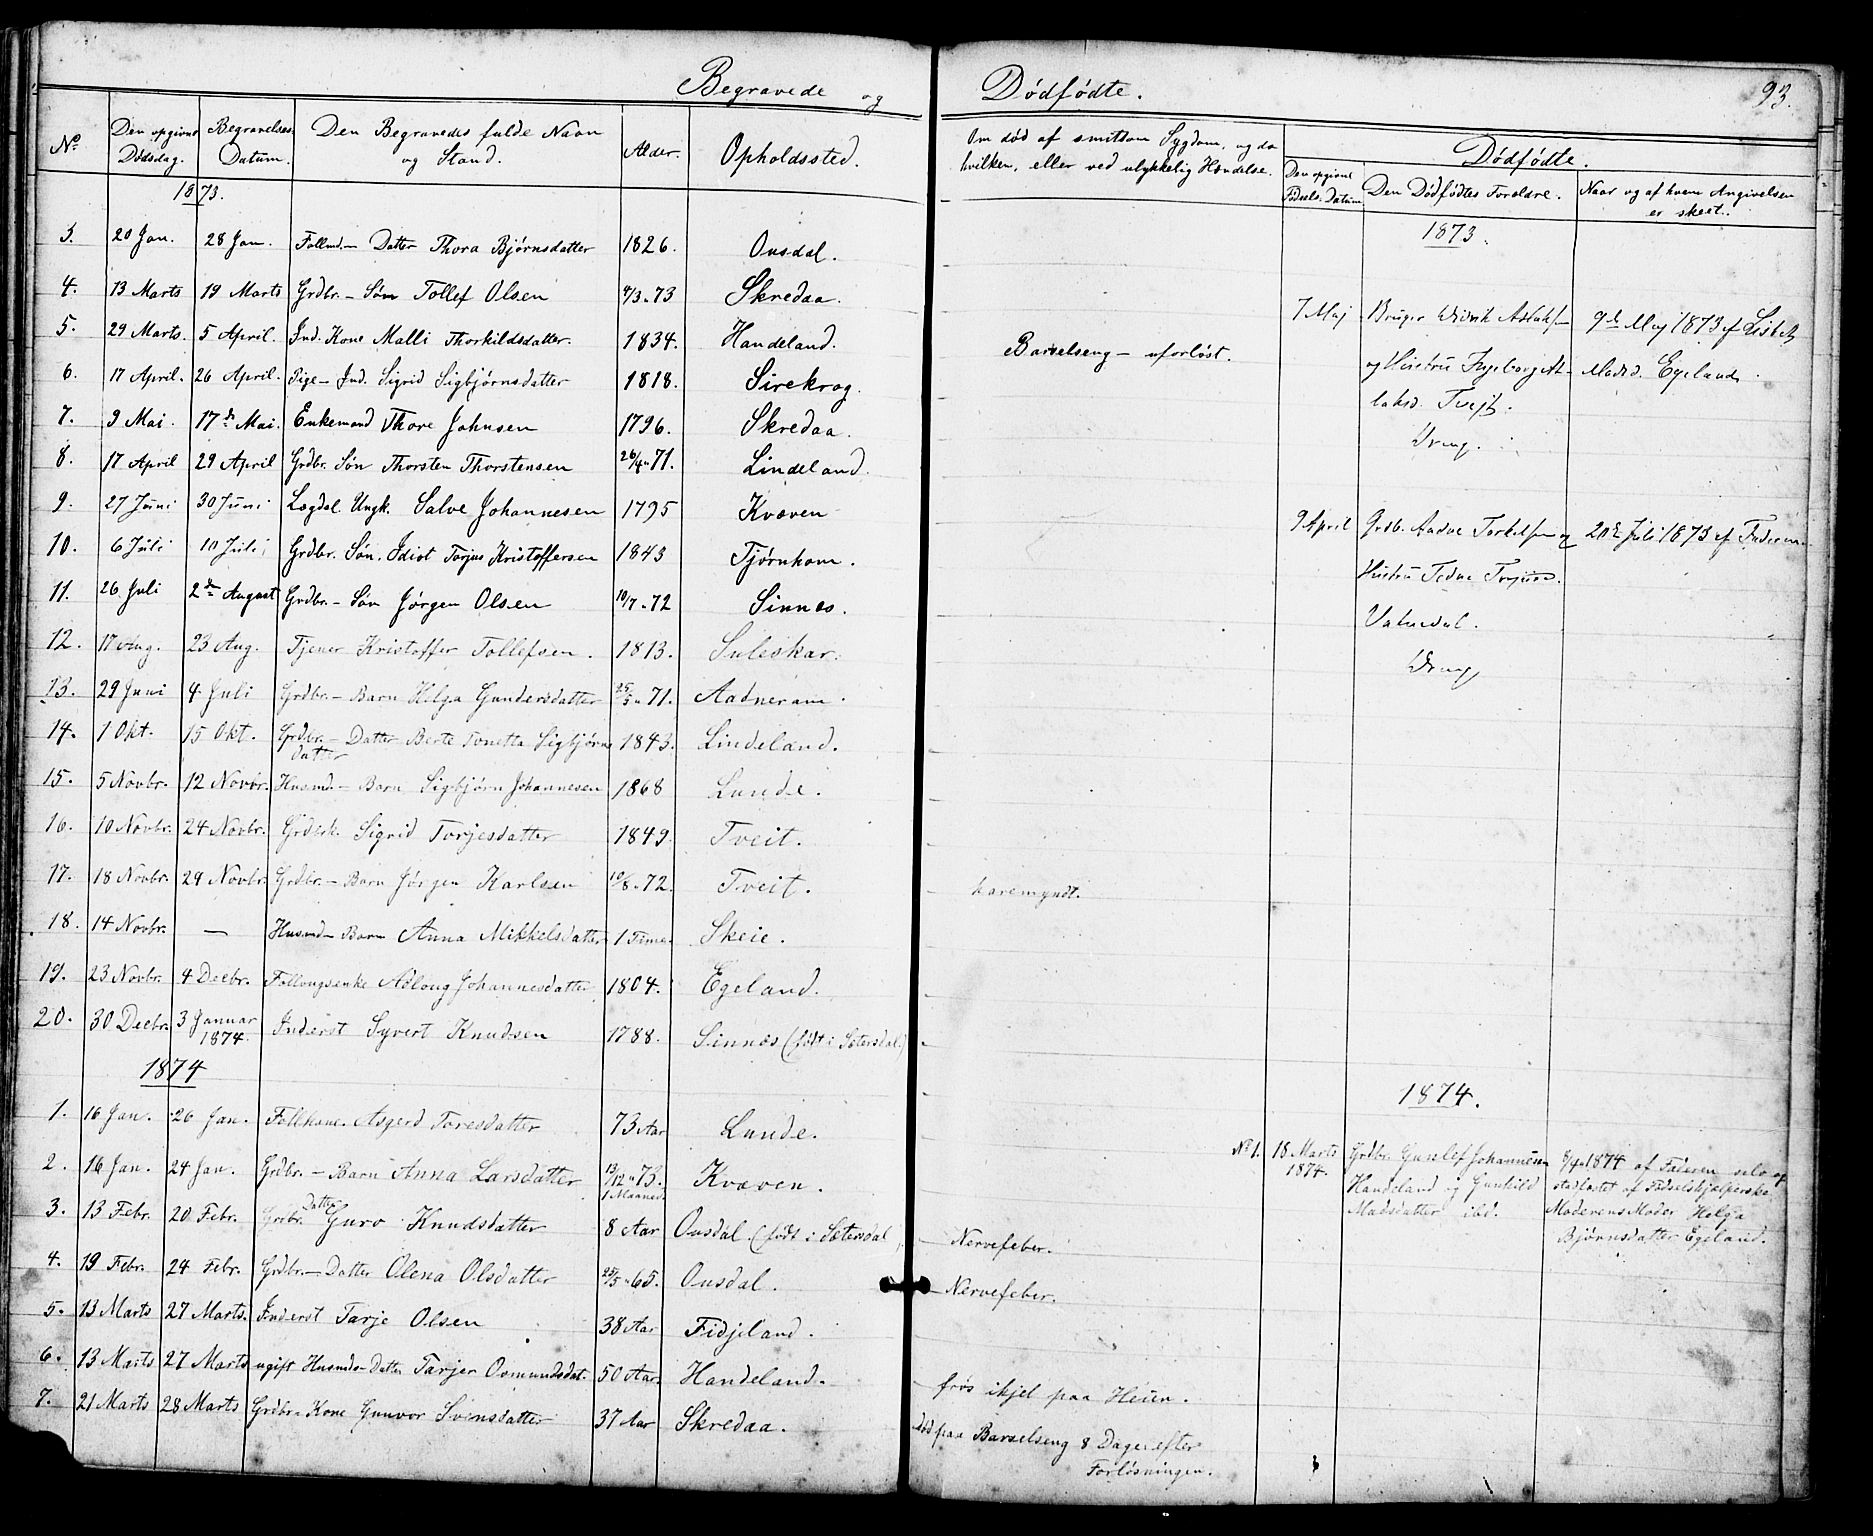 Begravede og Dødfødte. 93.
No. Den opgivne Dødsdag. Begravelses Datum. Den Begravedes fulde Navn og Stand. Alder. Opholdssted. Om død af smitsom Sygdom, og da hvilken, eller ved ulykkelig Hændelse.
Dødfødte.
Den opgivne Fødsels-Datum Den Dødfødtes Forældre. Naar og af hvem Angivelsen er skeet.
1873. 1873.
3. 20 Jan. 28 Jan. Follmd.- Datter Thora Bjørnsdatter 1826. Ousdal.
4. 13 Marts 19 Marts Grdbr.- Søn Tollef Olsen 4/3-73 Skredaa.
5. 29 Marts. 5 April. Ind. Kone Malli Thorkildsdatter. 1834. Handeland. Barselseng - uforløst.
6. 17 April. 26 April. Pige- Ind. Sigrid Sigbjørnsdatter 1818. Sirekrog.
7. 9 Mai. 17de Mai. Enkemand Thore Johnsen 1796. Skredaa.
8. 17 April 29 April Grdbr. Søn Thorsten Thorstensen 26/4-71. Lindeland.
9. 27 Juni 30 Juni Lægdsl. Ungk. Salve Johannesen 1795 Kvæven
10. 6 Juli 10 Juli Grdbr. Søn. Idiot Tarjus Kristoffersen 1843 Tjørnhom.
11. 26 Juli 2den August Grdbr.- Søn Jørgen Olsen 10/7-72 Sinnes.
12. 17 Aug. 23 Aug. Tjener Kristoffer Tollefsen. 1813. Suleskar.
13. 29 Juni 4 Juli Grdbr.- Barn Helga Gundersdatter 25/5-71. Aadneram.
14. 1 Okt. 15 Okt. Grdbr.- Datter Berte Tonetta Sigbjørns 1843. Lindeland.
datter
15. 5 Novbr. 12 Novbr. Husmd.- Barn Sigbjørn Johannesen 1868 Lunde.
16. 10 Novbr. 24 Novbr. Sigrid Torjesdatter 1849. Tveit.
17. 18 Novbr. 29 Novbr. Grdbr.- Barn Jørgen Karlsen 10/8-72. Tveit.
18. 14 Novbr. — Husmd- Barn Anna Mikkelsdatter 1 Time. Skeie.
19. 23 Novbr. 4 Decbr. Follougsenke Adloug Johannesdatter 1804. Egeland.
20. 30 Decbr. 3 Januar 1874. Inderst Syvert Knudsen 1788. Sinnes (født i Sætersdal)
7 Maj Bruger Didrik Aslaksen 9de Maj 1873 af Lisbet
og Hustru Ingeborg As- Madsd. Egeland.
laksd. Tvejt.
Dreng.
9 April Grdb. Aadne Torkelsen og 20de Juli 1873 af Faderen
Hustru
Dreng
1874 1874.
1. 16 Jan. 26 Jan. Follkone. Asgerd Toresdatter 73 Aar Lunde.
2. 16 Jan. 24 Jan. Grdbr.- Barn Anna Larsdatter 13/12-73. 1 Maaned. Kvæven.
3. 13 Febr. 20 Febr. Grdbr. Datter Guro Knudsdatter 8 Aar Ousdal (født i Sætersdal Nervefeber.
4. 19 Febr. 24 Febr. Grdbr.- Datter Olena Olsdatter 25/5-65. Ousdal. Nervefeber.
5. 13 Marts 27 Marts. Inderst Tarje Olsen 38 Aar Fidjeland.
6. 13 Marts 27 Marts ugift Husmds- Datter Tarjer Osmundsdat. 50 Aar. Handeland. frøs ihjel paa Heien.
7. 21 Marts 28 Marts Grdbr.- Kone Gunvor Svensdatter 37 Aar Skredaa. død paa Barselseng 8 Dage efter
Forløsningen.
No 1. 18 Marts 1874. Grdbr. Gunlef Johannesen 8/4-1874 af Faderen selv og
Handeland og Gunhild stadfæstet af Fødselshjælperske
Madsdatter ibd. Moderens Moder Helga
Bjørnsdatter Egeland.